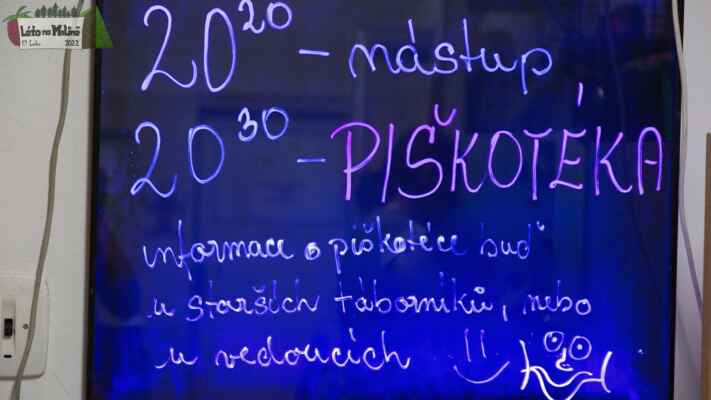 Léto na Mlýně
2022
20²⁰ - nástup
20³⁰ - PIŠKOTÉKA
informace o piškotéce buď
u starších táborníků, nebo
u vedoucích